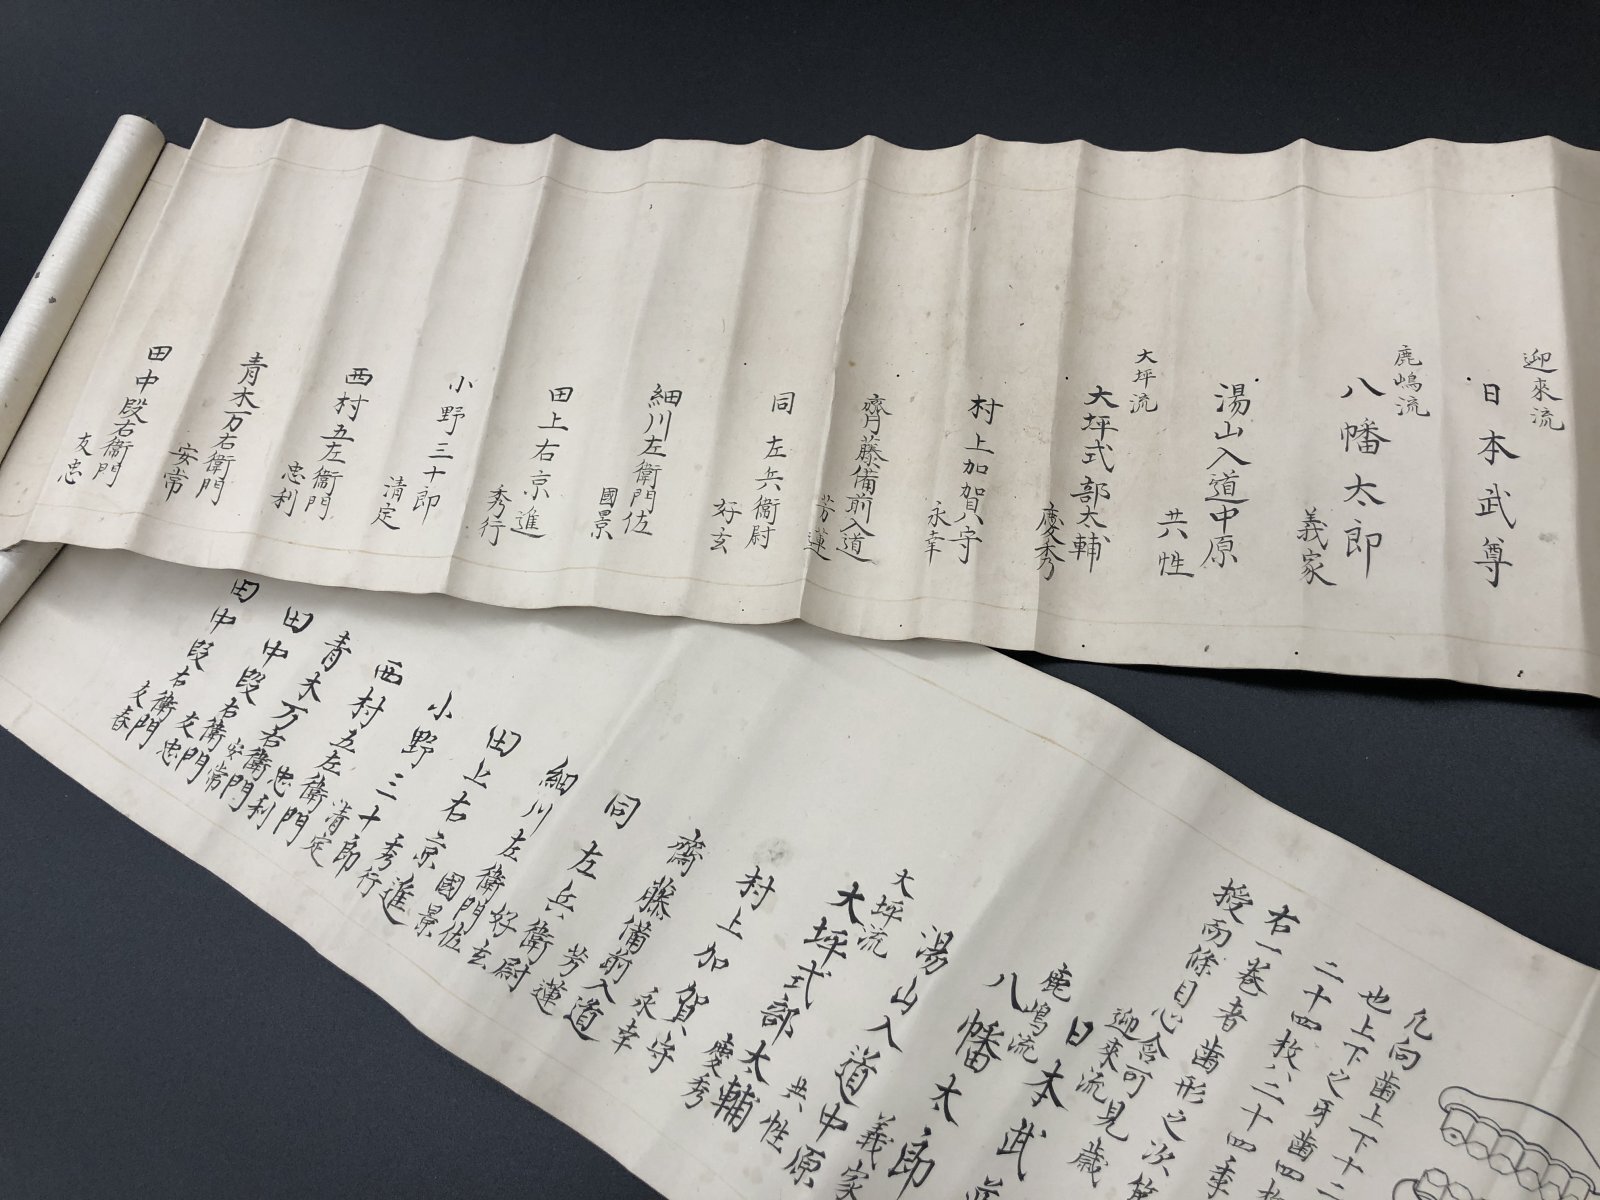 迎來流
日本武尊
鹿嶋流
八幡太郎
義家
湯山入道中原
共性
大坪流
大坪式部太輔
慶秀
村上加賀守
永幸
齊藤備前入道
芳蓮
同左兵衛尉
好玄
細川左衛門佐
國景
田上右京進
秀行
小野三十郎
清定
西村五左衛門
忠利
青木万右衛門
安常
田中段右衛門
友忠
凢向歯上下十二
也上下之牙歯四枚
二十四枚八二十四季
右一巻者歯形之次第
授両條目心含可見歳
迎來流
日本武
鹿嶋流
八幡太郎
義家
湯山入道中原
共性
大坪流
大坪式部太輔
慶秀
村上加賀守
永幸
齋藤備前入道
芳蓮
同左兵衛尉
好玄
細川左衛門佐
國景
田上右京進
秀行
小野三十郎
清定
西村五左衛門
忠利
青木万右衛門
安常
田中段右衛門
友忠
田中段右衛門
友春